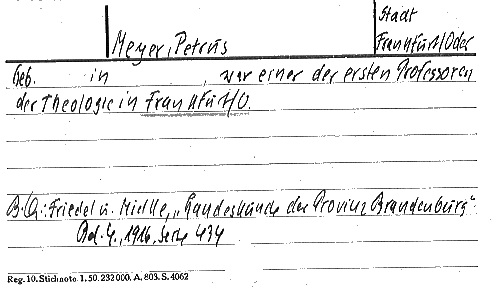 Stadt
Meyer, Petrus Frankfurt/Oder
Geb. in , war einer der ersten Professoren
der Theologie in Frankfurt/O.
B.Q.: Friedel u. Mielke, „Landeskunde der Provinz Brandenburg"
Bd. 4, 1916, Seite 434
Reg. 10. Stichnote. 1. 50. 232000. A. 803. S. 4062